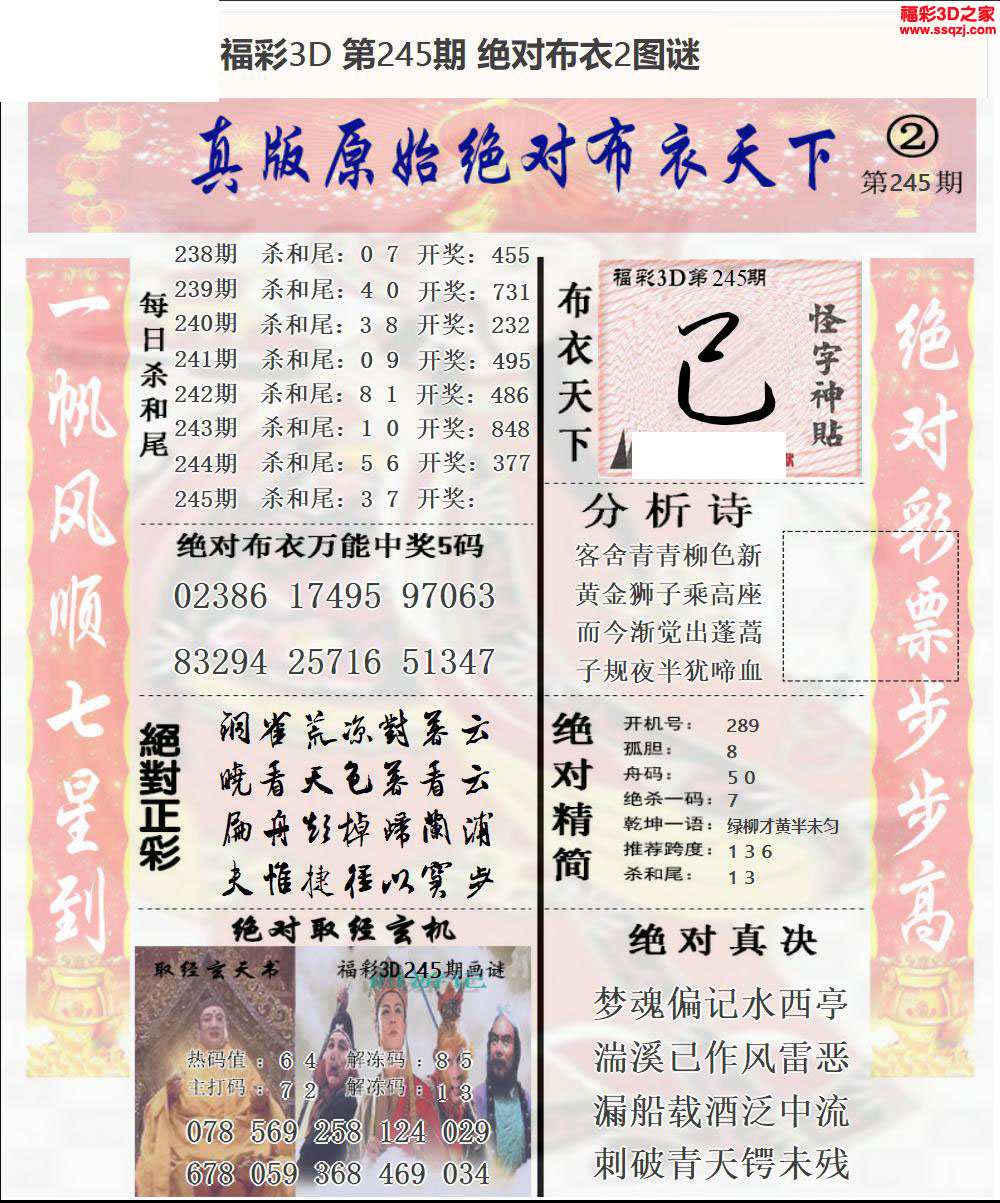 福彩3D之家
www.ssqzj.com
福彩3D 第245期 绝对布衣2图谜
真版原始绝对布衣天下
②
第245期
一帆风顺七星到
每日杀和尾
238期 杀和尾：0 7 开奖：455
239期 杀和尾：4 0 开奖：731
240期 杀和尾：3 8 开奖：232
241期 杀和尾：0 9 开奖：495
242期 杀和尾：8 1 开奖：486
243期 杀和尾：1 0 开奖：848
244期 杀和尾：5 6 开奖：377
245期 杀和尾：3 7 开奖：
绝对布衣万能中奖5码
02386 17495 97063
83294 25716 51347
絕對正彩
洞雀荒凉對暮云
晓看天色暮看云
扁舟彭棹歸蘭浦
夫惟捷径以窘步
绝对取经玄机
取经玄天书
福彩3D245期画谜
热码值：6 4 解冻码：8 5
主打码：7 2 解冻码：1 3
078 569 258 124 029
678 059 368 469 034
布衣天下
福彩3D第245期
己
怪字神貼
分析诗
客舍青青柳色新
黄金狮子乘高座
而今渐觉出蓬蒿
子规夜半犹啼血
绝对精简
开机号：289
孤胆：8
舟码：5 0
绝杀一码：7
乾坤一语：绿柳才黄半未匀
推荐跨度：1 3 6
杀和尾：1 3
绝对真决
梦魂偏记水西亭
湍溪已作风雷恶
漏船载酒泛中流
刺破青天锷未残
绝对彩票步步高